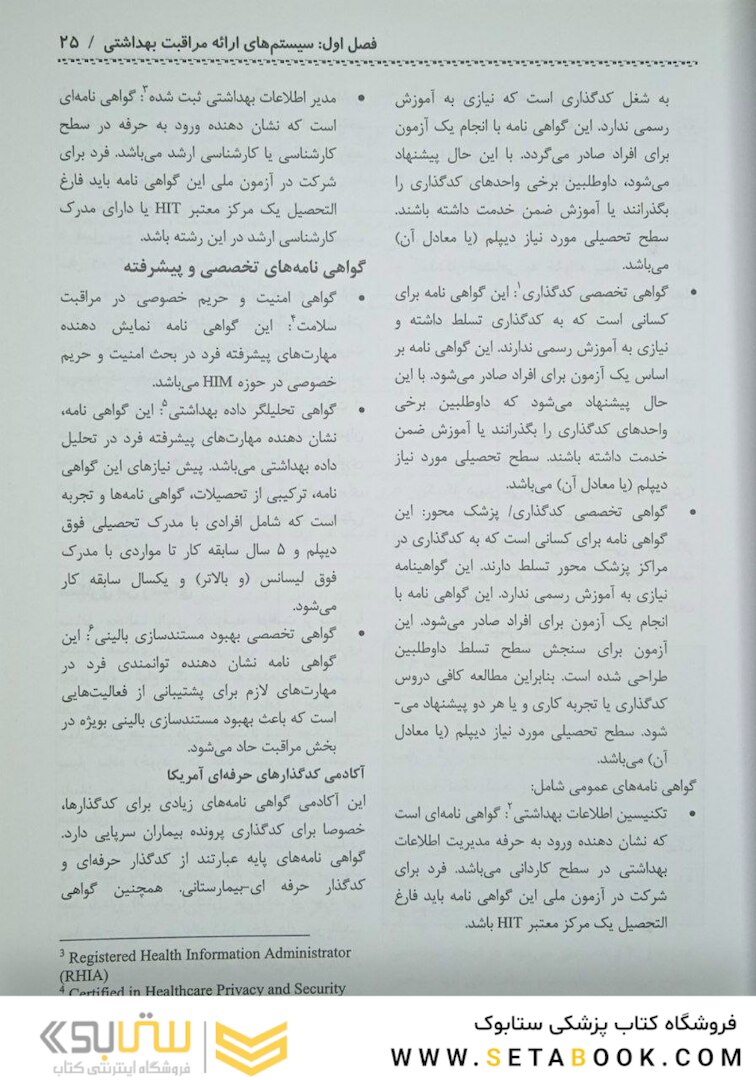 فصل اول: سیستم‌های ارائه مراقبت بهداشتی / ۲۵
به شغل کدگذاری است که نیازی به آموزش
رسمی ندارد. این گواهی نامه با انجام یک آزمون
برای افراد صادر می‌گردد. با این حال پیشنهاد
می‌شود، داوطلبین برخی واحدهای کدگذاری را
بگذرانند یا آموزش ضمن خدمت داشته باشند.
سطح تحصیلی مورد نیاز دیپلم (یا معادل آن)
می‌باشد.
• گواهی تخصصی کدگذاری۱: این گواهی نامه برای
کسانی است که به کدگذاری تسلط داشته و
نیازی به آموزش رسمی ندارند. این گواهی نامه بر
اساس یک آزمون برای افراد صادر می‌شود. با این
حال پیشنهاد می‌شود که داوطلبین برخی
واحدهای کدگذاری را بگذرانند یا آموزش ضمن
خدمت داشته باشند. سطح تحصیلی مورد نیاز
دیپلم (یا معادل آن) می‌باشد.
• گواهی تخصصی کدگذاری/ پزشک محور: این
گواهی نامه برای کسانی است که به کدگذاری در
مراکز پزشک محور تسلط دارند. این گواهینامه
نیازی به آموزش رسمی ندارد. این گواهی نامه با
انجام یک آزمون برای افراد صادر می‌شود. این
آزمون برای سنجش سطح تسلط داوطلبین
طراحی شده است. بنابراین مطالعه کافی دروس
کدگذاری یا تجربه کاری و یا هر دو پیشنهاد می-
شود. سطح تحصیلی مورد نیاز دیپلم (یا معادل
آن) می‌باشد.
گواهی نامه‌های عمومی شامل:
• تکنیسین اطلاعات بهداشتی۲: گواهی نامه‌ای است
که نشان دهنده ورود به حرفه مدیریت اطلاعات
بهداشتی در سطح کاردانی می‌باشد. فرد برای
شرکت در آزمون ملی این گواهی نامه باید فارغ
التحصیل یک مرکز معتبر HIT باشد.
• مدیر اطلاعات بهداشتی ثبت شده۳: گواهی نامه‌ای
است که نشان دهنده ورود به حرفه در سطح
کارشناسی یا کارشناسی ارشد می‌باشد. فرد برای
شرکت در آزمون ملی این گواهی نامه باید فارغ
التحصیل یک مرکز معتبر HIT یا دارای مدرک
کارشناسی ارشد در این رشته باشد.
گواهی نامه‌های تخصصی و پیشرفته
• گواهی امنیت و حریم خصوصی در مراقبت
سلامت۴: این گواهی نامه نمایش دهنده
مهارت‌های پیشرفته فرد در بحث امنیت و حریم
خصوصی در حوزه HIM می‌باشد.
• گواهی تحلیلگر داده بهداشتی۵: این گواهی نامه،
نشان دهنده مهارت‌های پیشرفته فرد در تحلیل
داده بهداشتی می‌باشد. پیش نیازهای این گواهی
نامه، ترکیبی از تحصیلات، گواهی نامه‌ها و تجربه
است که شامل افرادی با مدرک تحصیلی فوق
دیپلم و ۵ سال سابقه کار تا مواردی با مدرک
فوق لیسانس (و بالاتر) و یکسال سابقه کار
می‌شود.
• گواهی تخصصی بهبود مستندسازی بالینی۶: این
گواهی نامه نشان دهنده توانمندی فرد در
مهارت‌های لازم برای پشتیبانی از فعالیت‌هایی
است که باعث بهبود مستندسازی بالینی بویژه در
بخش مراقبت حاد می‌شود.
آکادمی کدگذارهای حرفه‌ای آمریکا
این آکادمی گواهی نامه‌های زیادی برای کدگذارها،
خصوصا برای کدگذاری پرونده بیماران سرپایی دارد.
گواهی نامه‌های پایه عبارتند از کدگذار حرفه‌ای و
کدگذار حرفه ای-بیمارستانی. همچنین گواهی
3 Registered Health Information Administrator
(RHIA)
4 Certified in Healthcare Privacy and Security
ستابوک
فروشگاه اینترنتی کتاب
فروشگاه کتاب پزشکی ستابوک
WWW.SETABOOK.COM